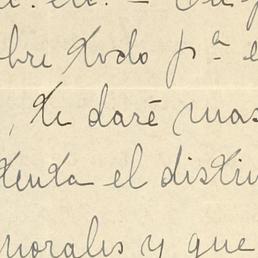 sobre todo pª e
, te daré mas
tenta el distin
morales y que